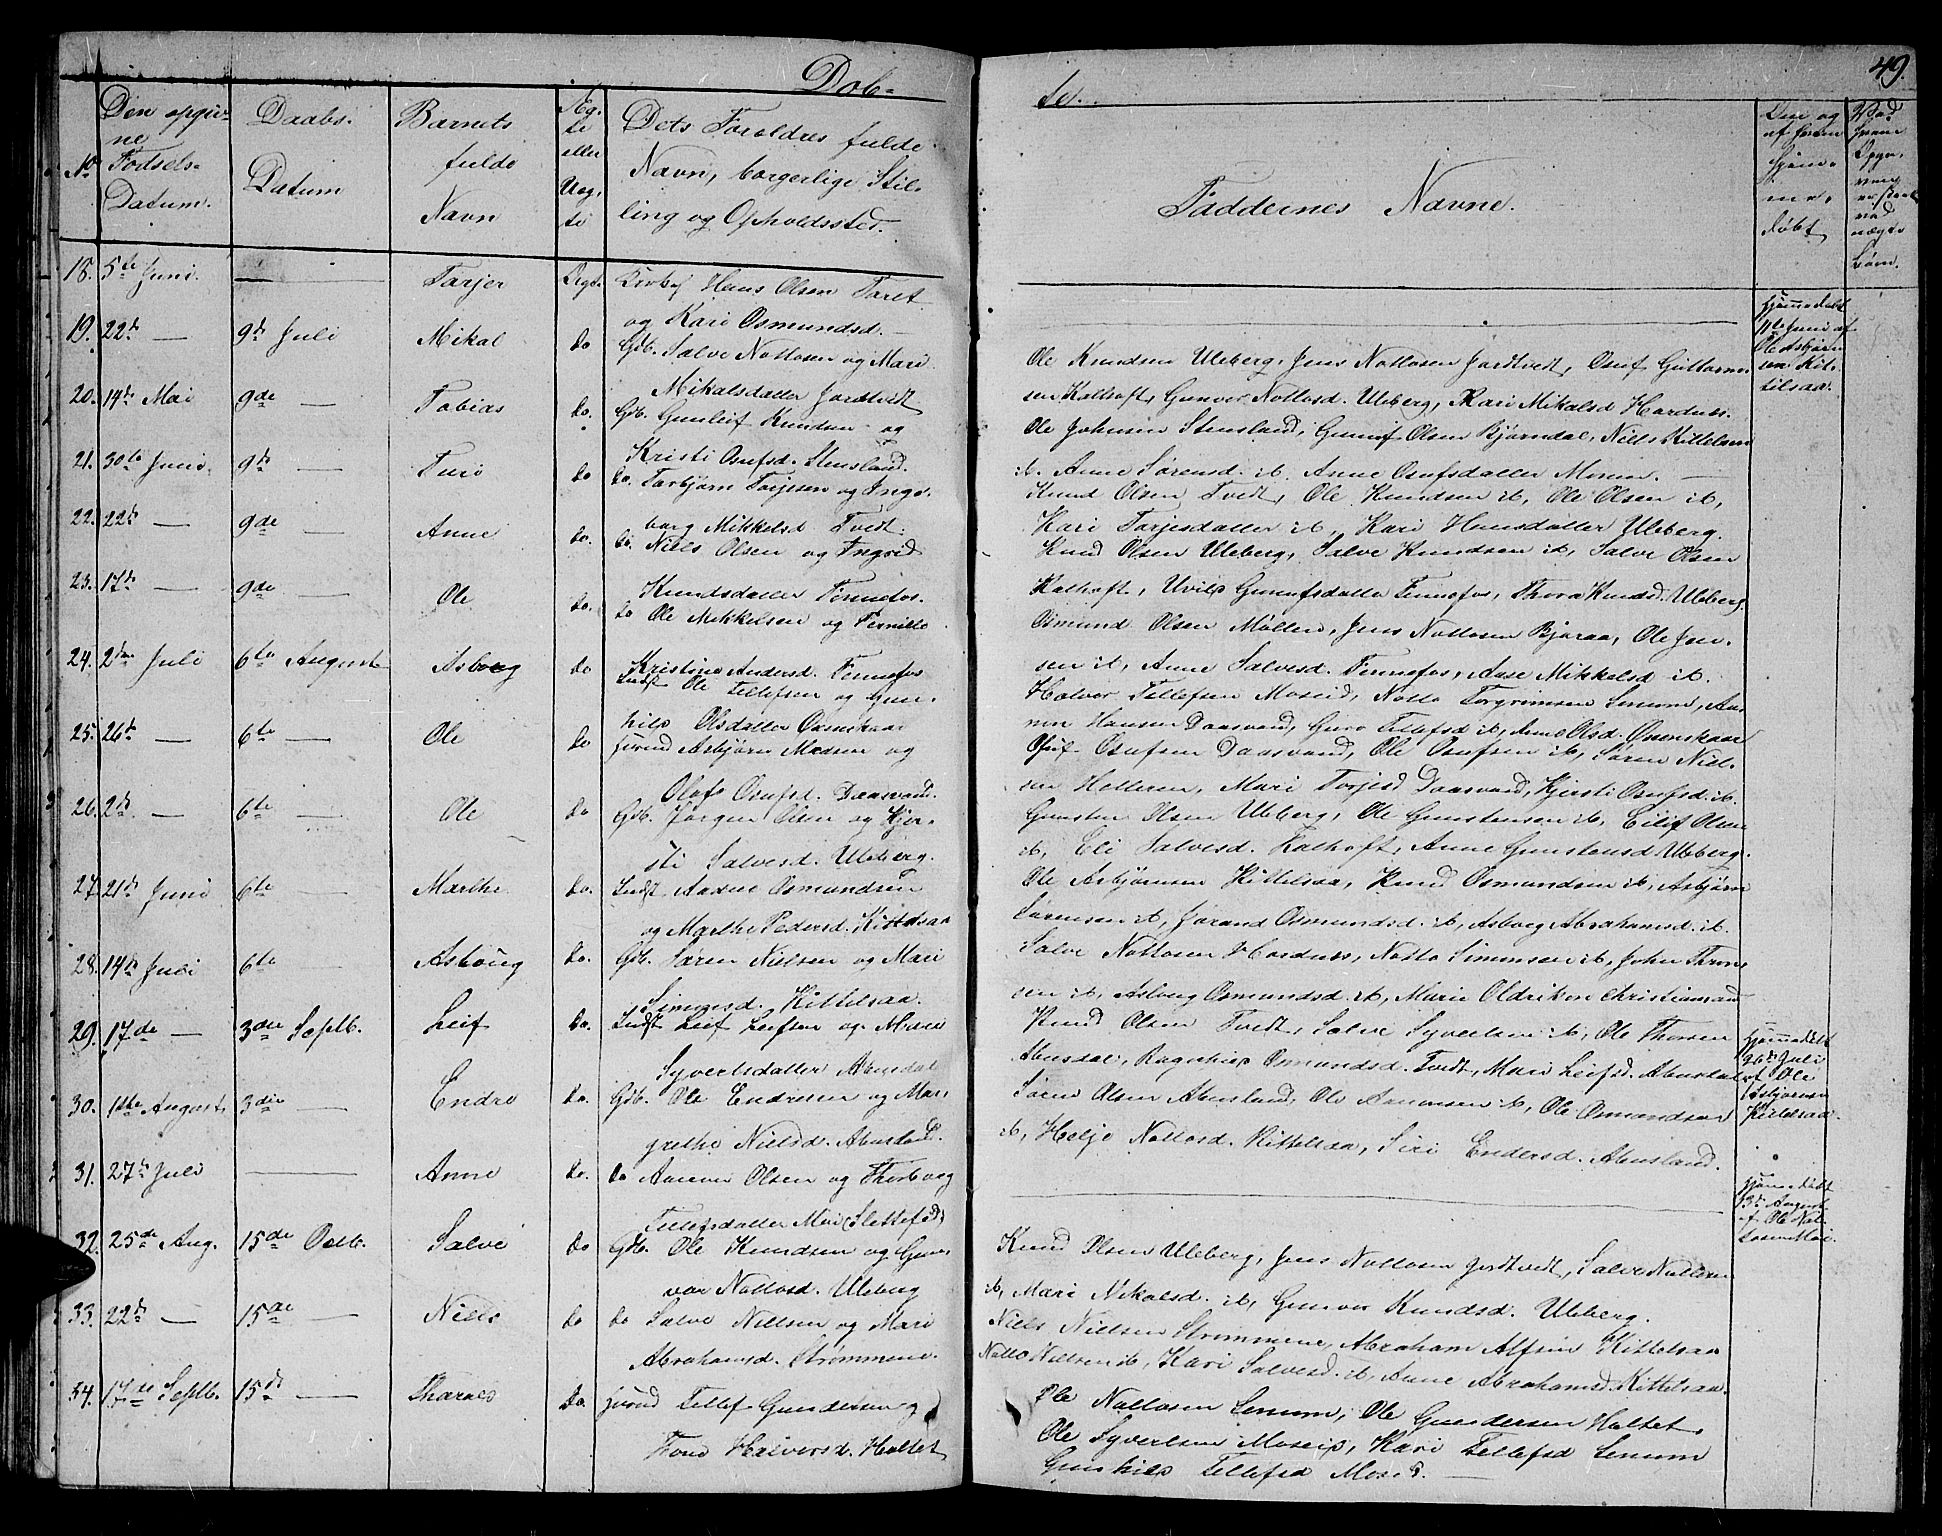 Døb-
te.
49.
No
Den opgivne Fødsels-Datum.
Daabs-Datum
Barnets fulde Navn
Ægte eller Uægte
Dets Forældres fulde Navn, borgerlige Stilling og Opholdssted.
Faddernes Navne.
døbt
18. 5te Juni. — Tarjer Hans Olsen Taret
og Kari Osmundsd. —
hjemmedøbt 11te Juni af Ole Asbjørnsen Kittilsaa.
19. 22de — 9de Juli Mikal do Gdb. Salve Nottosen og Mari
Mikalsdatter Jordtvedt
Ole Knudsen Uleberg, Jens Nottosen Jordtvedt, Osuf Guttorms-
sen Kalhoft, Gunvor Nottosd. Uleberg, Kari Mikalsd Hordnes.
20. 14de Mai 9de — Tobias do. Gdb. Gunleif Knudsen og
Kristi Osufsd. Stensland.
Ole Johnsen Stensland, Gunuf Olsen Bjørndal, Niels Kittelsen
it. Anne Sørensd. it. Anne Osufsdatter Moner. —
21. 30te Juni. 9de — Turi do do. Torbjørn Torjesen og Inge-
borg Mikkelsd. Tvedt.
Knud Olsen Tvedt, Ole Knudsen it, Ole Olsen it,
Kari Torjesdatter it, Kari Hansdatter Uleberg.
22. 22de — 9de — Anne do. do. Niels Olsen og Ingrid
Knudsdatter Fennefos.
Knud Olsen Uleberg, Salve Knudsen it, Salve Olsen
Kalhoft, Gunufsdatter Fennefos, Thora Knudsd. Uleberg.
23. 17de — 9de — Ole do. do Ole Mikkelsen og Pernille
Kristine Andersd. Fennefos
Osmund Olsen Møllen, Jens Nottosen Bjoraa, Ole Jen-
sen it, Anne Salvesd. Fennefos, Aase Mikkelsd it.
24. 2den Juli 6te August Asborg do Indst Ole Tellefsen og Gun-
hild Olsdatter Qvenskaar
Halvor Tellefsen Moseid, Notto Torgrimsen Senum, Aa-
non Hansen Daasvand, Guro Tellefsd it, Anne Olsd. Qvenskaar
25. 26de — 6te — Ole do Asbjørn Madsen og
Olafe Osufsd. Daasvand.
Osuf Osufsen Daasvand, Ole Osufsen it, Søren Niel-
sen Holteren, Mari Torjesd Daasvand, Kjersti Osufsd. it.
26. 2de — 6te — Ole do Gdb. Jørgen Olsen og Kjer-
sti Salvesd. Uleberg.
Gunsten Olsen Uleberg, Ole Gunstensen it, Eilif Olsen
it, Eli Salvesd. Kalhoft, Anne Gunstensd Uleberg.
27. 21de Juni 6te — Marthe do. Indst Aasne Osmundsen
og Marthe Pedersd. Kittelsaa
Ole Asbjørnsen Kittelsaa, Knud Osmundsen it, Asbjørn
Sørensen it, Jorand Osmundsd. it, Asborg Abrahamsd. it.
28. 14de Juli 6te — Asborg do. Gdb. Søren Nielsen og Mari
Simonsd. Kittelsaa.
Salve Nottosen Hordnes, Notto Simonsen it, John Thron-
sen it, Asborg Osmundsd. it, Marie Oldriken Christiansand
29. 17de — 3die Septb. Leif do. Indst Leif Leifsen og Maria
Syvertsdatter Abusdal
Knud Olsen Tvedt, Salve Syvertsen it, Ole Thorsen
Abusdal, Ragnhild Osmundsd. Tvedt, Mari Leifsd. Abusdal
hjemmedøbt 26de Juli af Ole Asbjørnsen Kittelsaa.
30. 1ste August 3die — Endre do. Gdb. Ole Endresen og Mar-
grethe Nielsd. Abusland.
Søren Olsen Abusland, Ole Aanonsen it, Ole Osmundsen
it, Helje Nottosd. Kittelsaa, Siri Endersd. Abusland.
31. 27de Juli — Anne do. do Aanon Olsen og Thorborg
Tellefsdatter Moi (Slettefed)
hjemmedøbt 13de August af Ole Not-
tosen Moi.
32. 25de Aug. 15de Octb. Salve do Gdb. Ole Knudsen og Gun-
vor Nottosd. Uleberg
Knud Olsen Uleberg, Jens Nottosen Jordtvedt, Salve Nottosen
it, Mari Mikalsd. it, Gunvor Knudsd. Uleberg.
33. 22de — 15de — Niels do do Salve Nielsen og Mari
Abrahamsd. Strømmene.
Niels Nielsen Strømmene, Abraham Alfsen Kittelsaa
Notto Nielsen it, Kari Salvesd. it, Anne Abrahamsd. Kittelsaa.
34. 17de Septb. 15de — Tharald do. Tellef Gundersen og
Tone Halvorsd. Holtet
Ole Nottosen Senum, Ole Gundersen Holtet,
Ole Syvertsen Moseid, Kari Tellefsd Senum
Gunhild Tellefsd Moseid. —